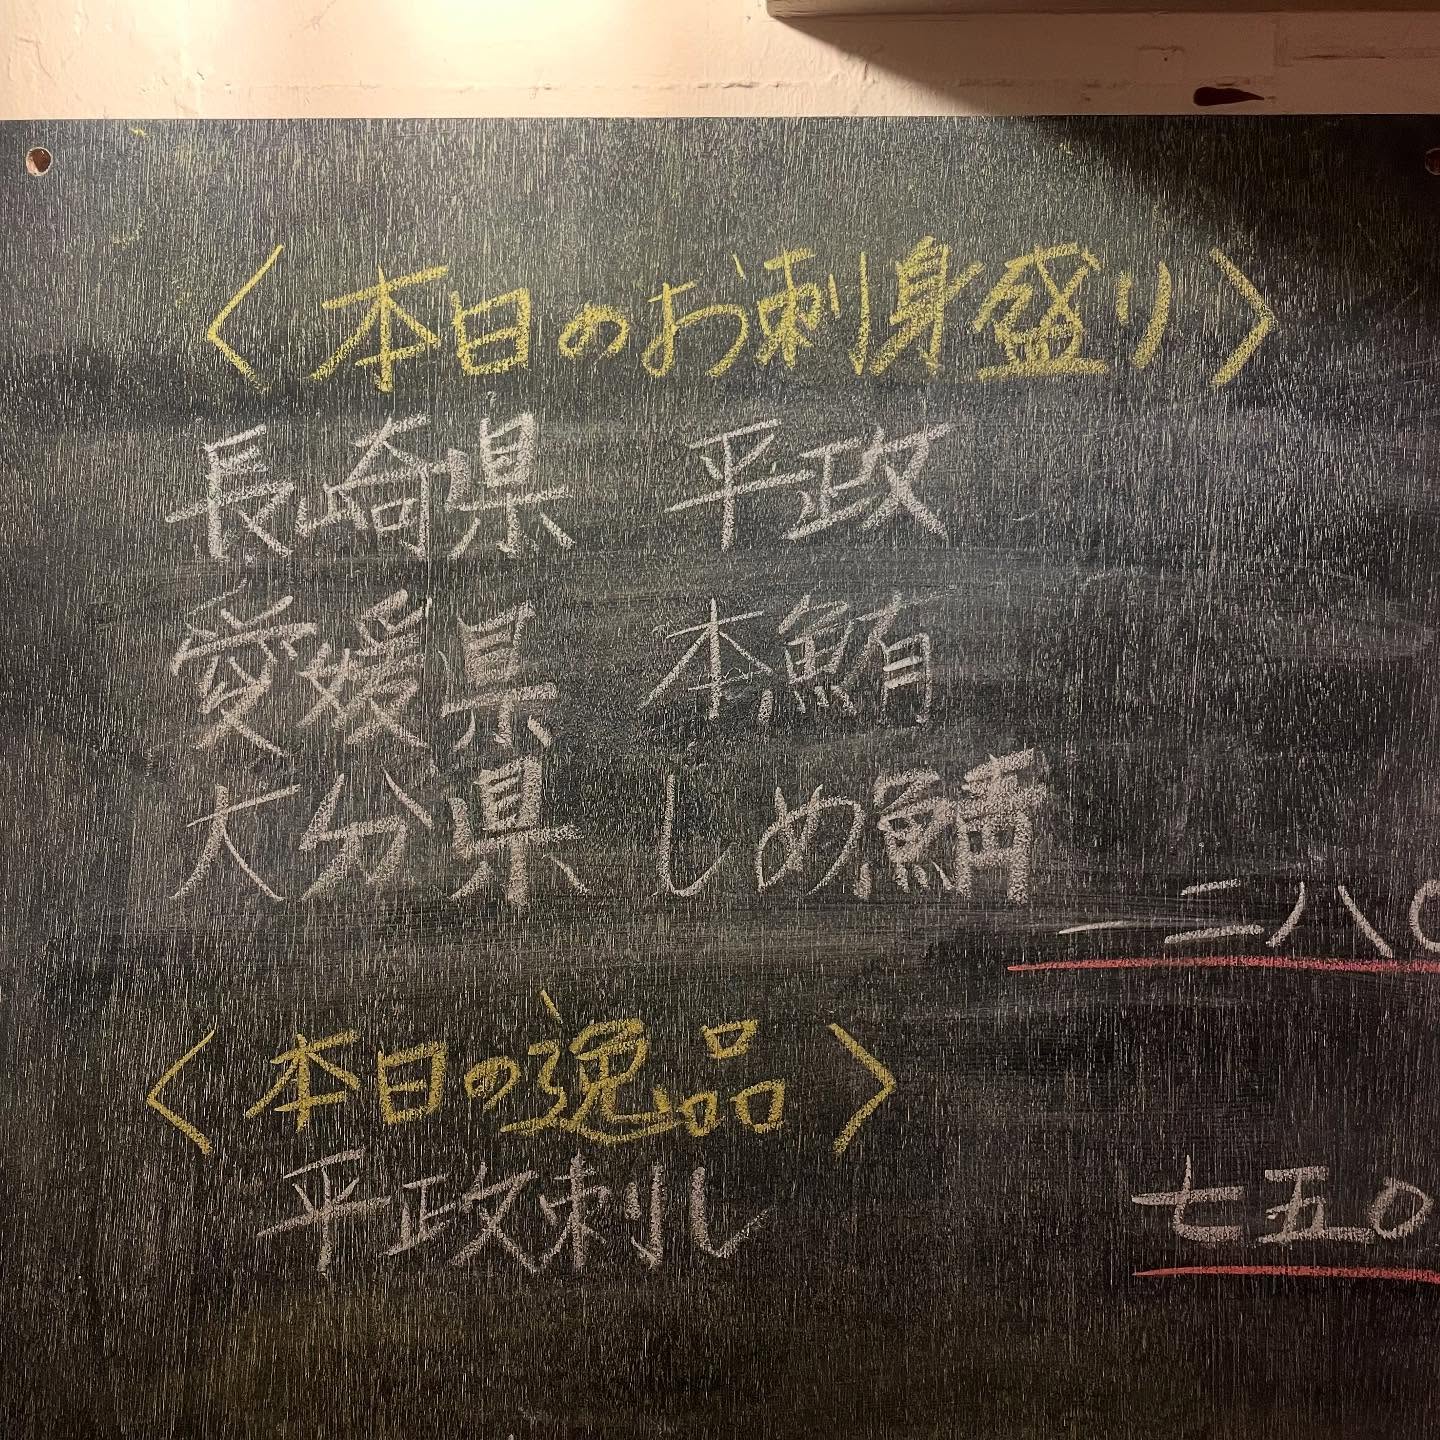 〈本日のお刺身盛り〉
長崎県 平政
愛媛県 本鮪
大分県 しめ鯖
一二八〇
〈本日の逸品〉
平政刺し 七五〇